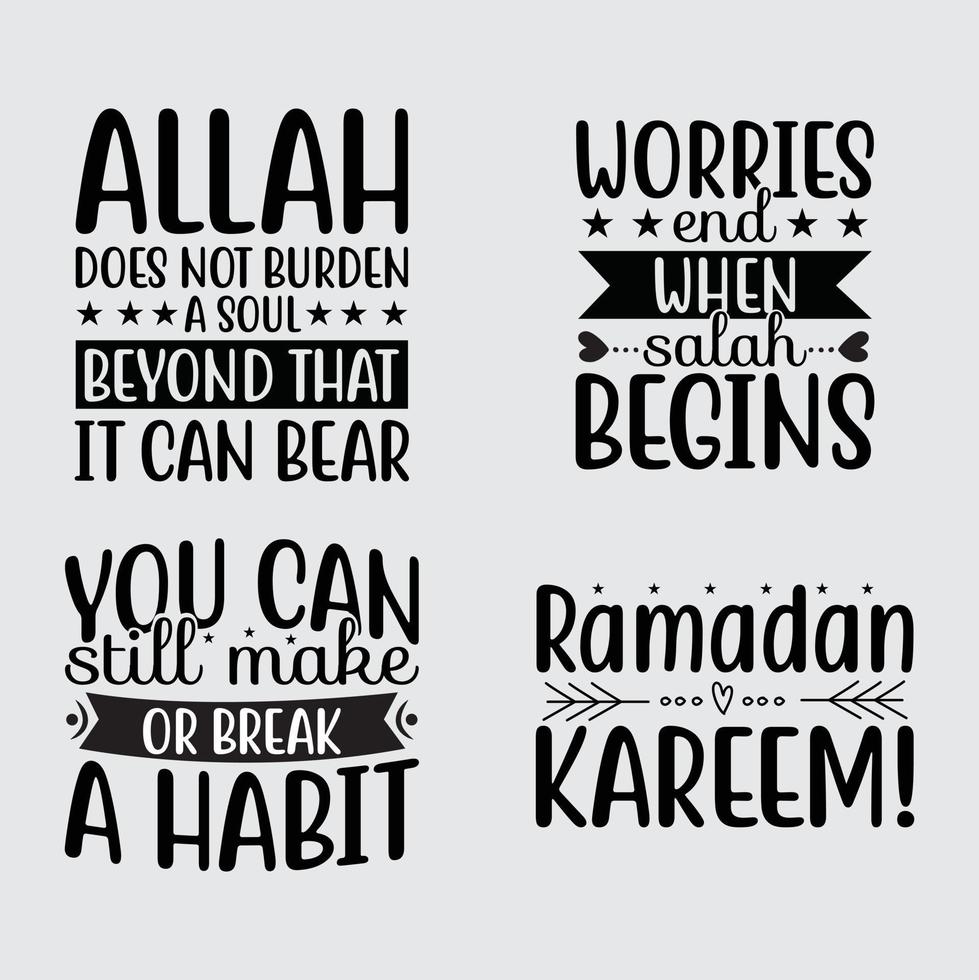 ALLAH
DOES NOT BURDEN
A SOUL
BEYOND THAT
IT CAN BEAR
WORRIES
end
WHEN
salah
BEGINS
YOU CAN
still make
OR BREAK
A HABIT
Ramadan
KAREEM!